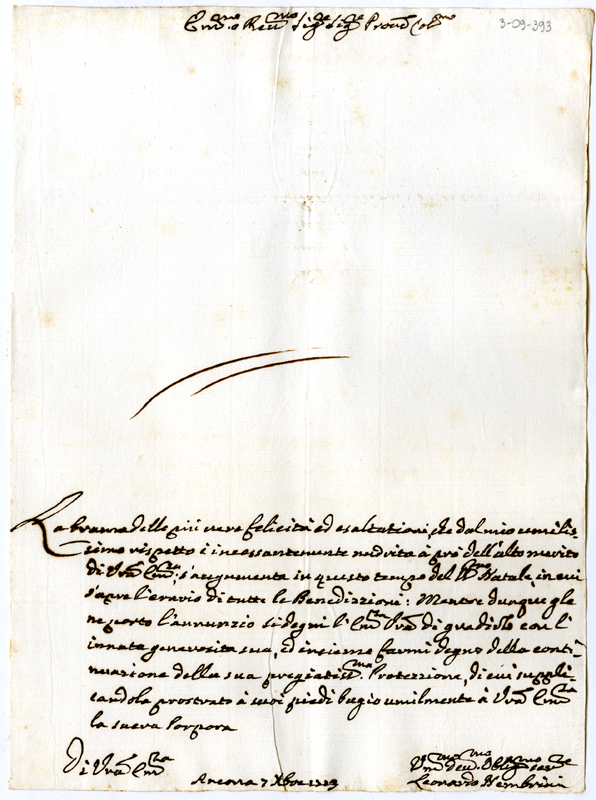 Em.mo e Rev.mo Sig.re Sig.re Pron Col.mo
3-09-393
La brama delle più vere felicità ed esaltationi, che dal mio umilis=
simo rispetto è incessantemente nodrita à prò dell'alto merito
di Vra Em.za, s'augumenta in questo tempo del SS.mo Natale, in cui
s'apre l'erario di tutte le Benedizzioni: Mentre dunque gle
ne porto l'annunzio si degni l'Em.za Vra di gradirlo con l'
innata generosità sua, ed insieme farmi degno della conti=
nuazione della sua pregiatis.ma Protezzione, di cui suppli=
candola prostrato à suoi piedi bagio umilmente à Vra Em.za
la sacra Porpora
Di Vra Em.za
Ancona 7 Xbre
Um.mo Dev.mo Oblig.mo
Leonardo Nembrini